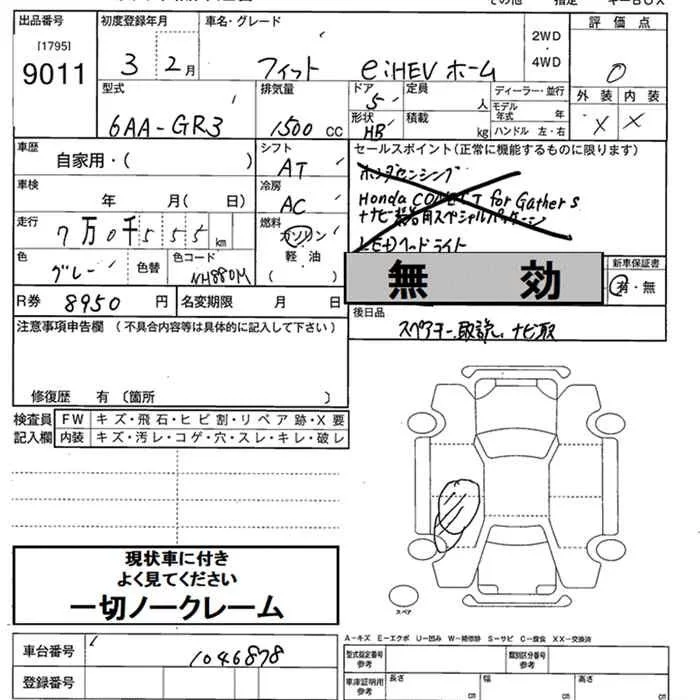 出品番号 初度登録年月 車名・グレード 評価点
[1795]
9011
3 2月 フィット e:HEV ホーム
2WD
・
4WD
0
型式 排気量 ドア 定員 ディーラー・並行 外装 内装
5 人 モデル年式 年
6AA-GR3 1500 CC 形状 積載 ハンドル 左・右 X X
HB kg
車歴 シフト セールスポイント(正常に機能するものに限ります)
自家用・( ) AT
ホンダセンシング
車検 冷房
年 月( 日) AC
Honda CONNECT for Gathers
走行 燃料
7万0千555km ガソリン
軽油
( )
LEDヘッドライト
色 色替 色コード
グレー NH880M
無効
新車保証書
有・無
R券 8950 円 名変期限 月 日
後日品
スペアキー、取説、ナビ取
注意事項申告欄(不具合内容等は具体的に記入して下さい)
修復歴 有 〔箇所 〕
検査員 FW キズ・飛石・ヒビ割・リペア跡・X要
記入欄 内装 キズ・汚レ・コゲ・穴・スレ・キレ・破レ
現状車に付き
よく見てください
一切ノークレーム
スペア
A-キズ E-エクボ U-凹み W-補修跡 S-サビ C-腐食 XX-交換済
車台番号 1046878
型式指定番号 参考 類別区分番号 参考
登録番号
車庫証明用 参考 長さ cm 幅 cm 高さ cm